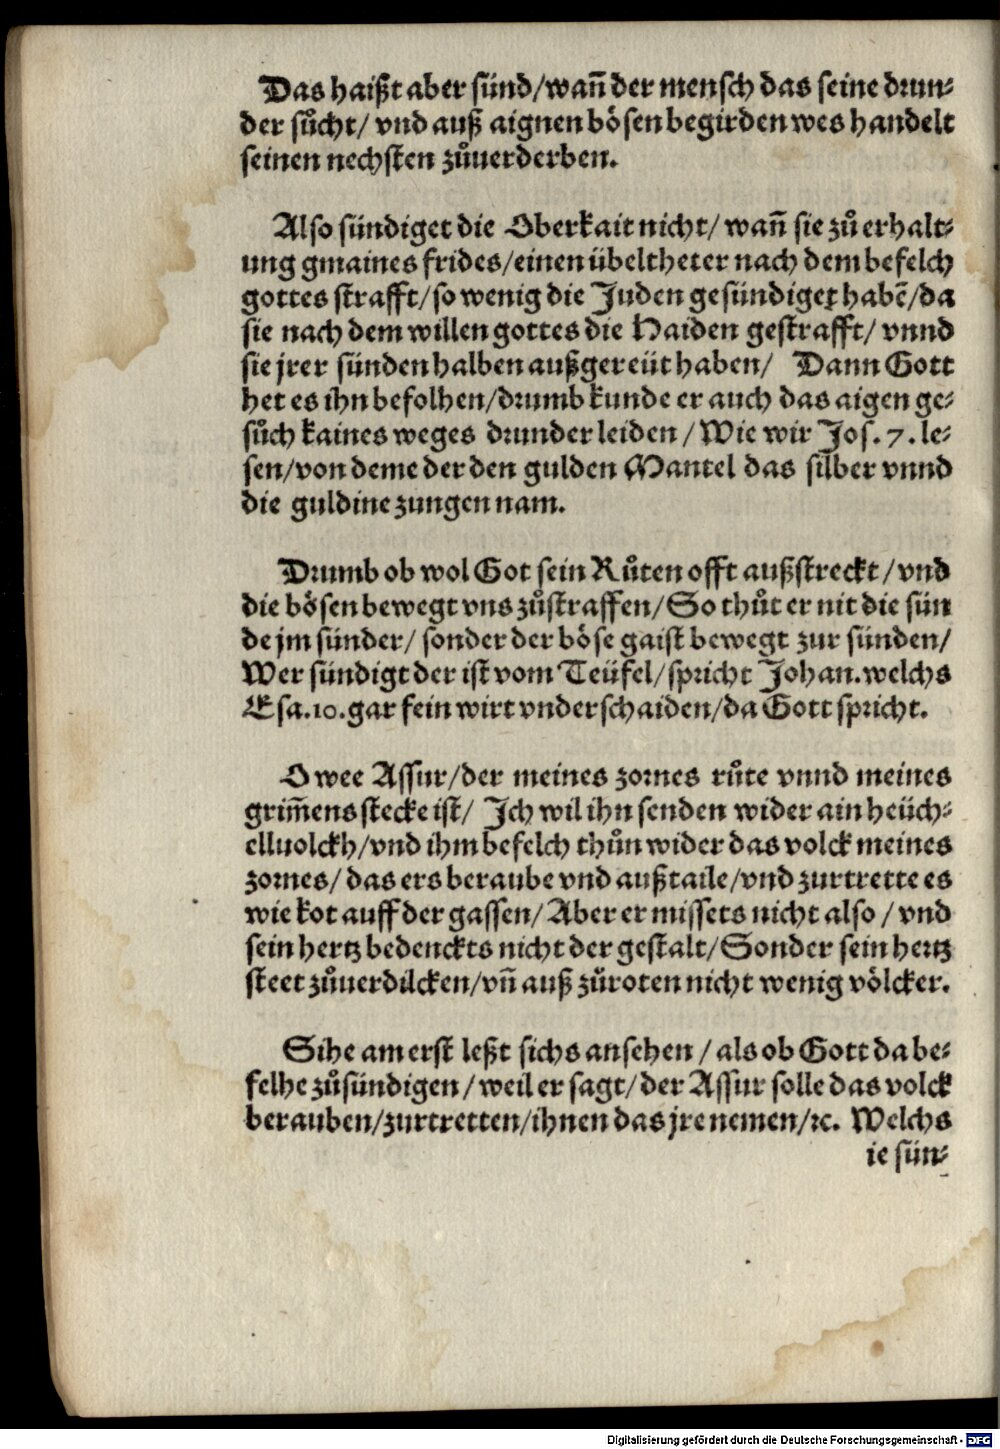 Das haißt aber sünd/wañ der mensch das seine drun⸗
der sůcht/ vnd auß aignen bösen begirden wes handelt
seinen nechsten zůuerderben.
Also sündiget die Oberkait nicht/ wañ sie zů erhalt⸗
ung gmaines frides/einen übeltheter nach dem befelch
gottes strafft/so wenig die Juden gesündiget habẽ/da
sie nach dem willen gottes die Haiden gestrafft/ vnnd
sie jrer sünden halben außgereüt haben/ Dann Gott
het es ihn befolhen/drumb kunde er auch das aigen ge⸗
sůch kaines weges drunder leiden / Wie wir Jos. 7. le⸗
sen/von deme der den gulden Mantel das silber vnnd
die guldine zungen nam.
Drumb ob wol Got sein Růten offt außstreckt/vnd
die bösen bewegt vns zůstraffen/So thůt er nit die sün
de jm sünder/ sonder der böse gaist bewegt zur sünden/
Wer sündigt der ist vom Teüfel/spricht Johan. welchs
Esa.10.gar fein wirt vnderschaiden/da Gott spricht.
O wee Assur/der meines zornes růte vnnd meines
grim̃ens stecke ist/ Jch wil ihn senden wider ain heüch⸗
elluolckh/vnd ihm befelch thůn wider das volck meines
zornes/ das ers beraube vnd außtaile/vnd zurtrette es
wie kot auff der gassen/ Aber er missets nicht also / vnd
sein hertz bedenckts nicht der gestalt/Sonder sein hertz
steet zůuerdilcken/vñ auß zůroten nicht wenig völcker.
Sihe am erst leßt sichs ansehen / als ob Gott da be⸗
felhe zůsündigen / weil er sagt/der Assur solle das volck
berauben/zurtretten/ihnen das jre nemen/ꝛc. Welchs
ie sün⸗
Digitalisierung gefördert durch die Deutsche Forschungsgemeinschaft - DFG